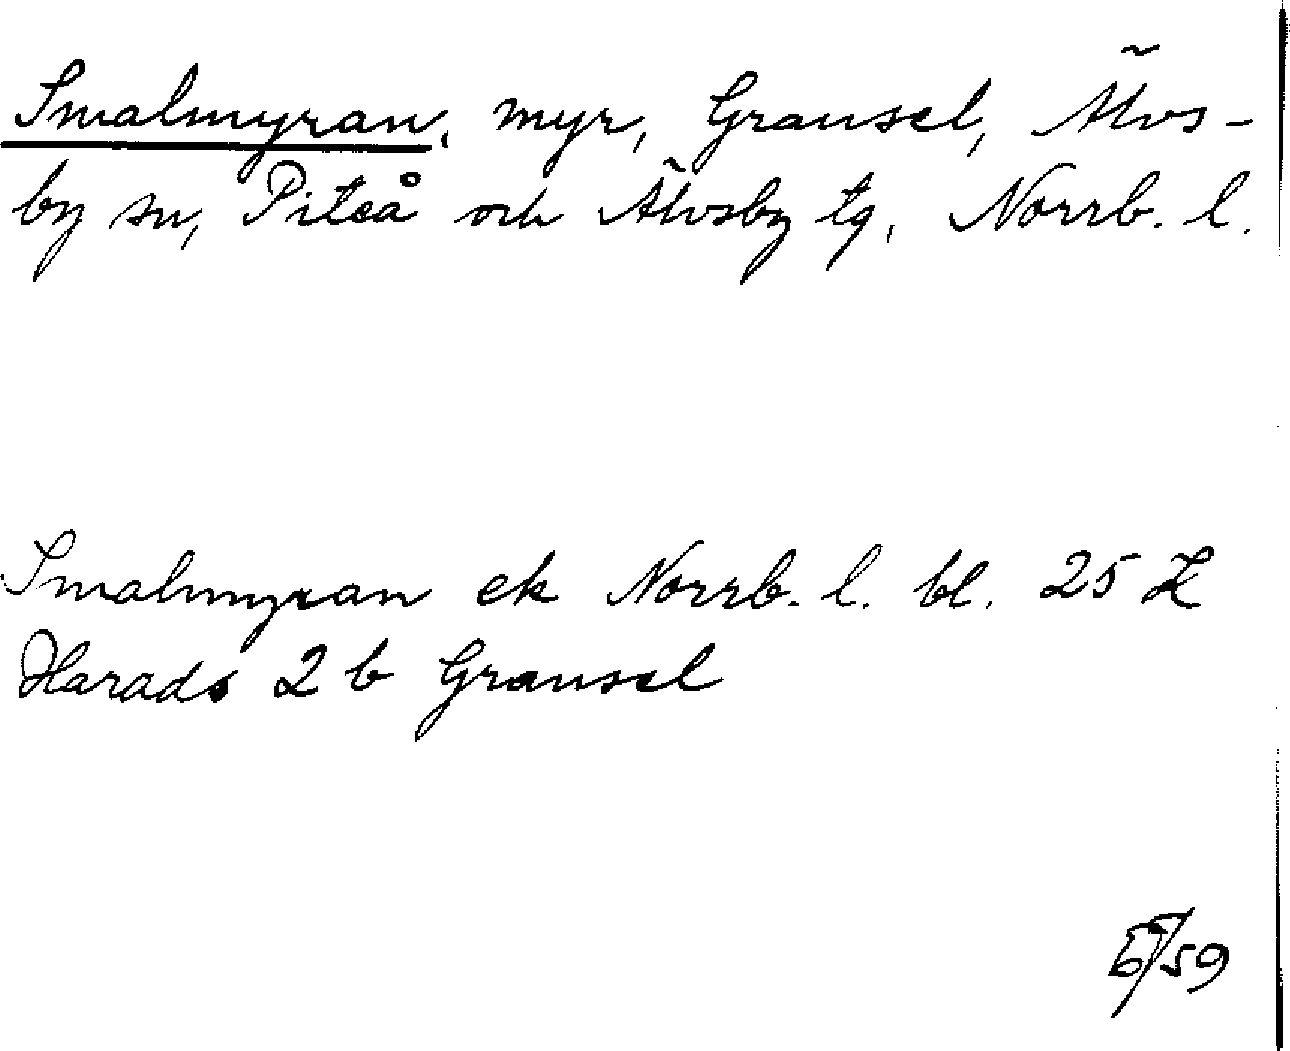 Smalmyran, myr, Gransel, Älvs-
by sn, Piteå och Älvsby tg, Norrb. l.
Smalmyran ek Norrb. l. bl. 25 K
Harads 2 b Gransel